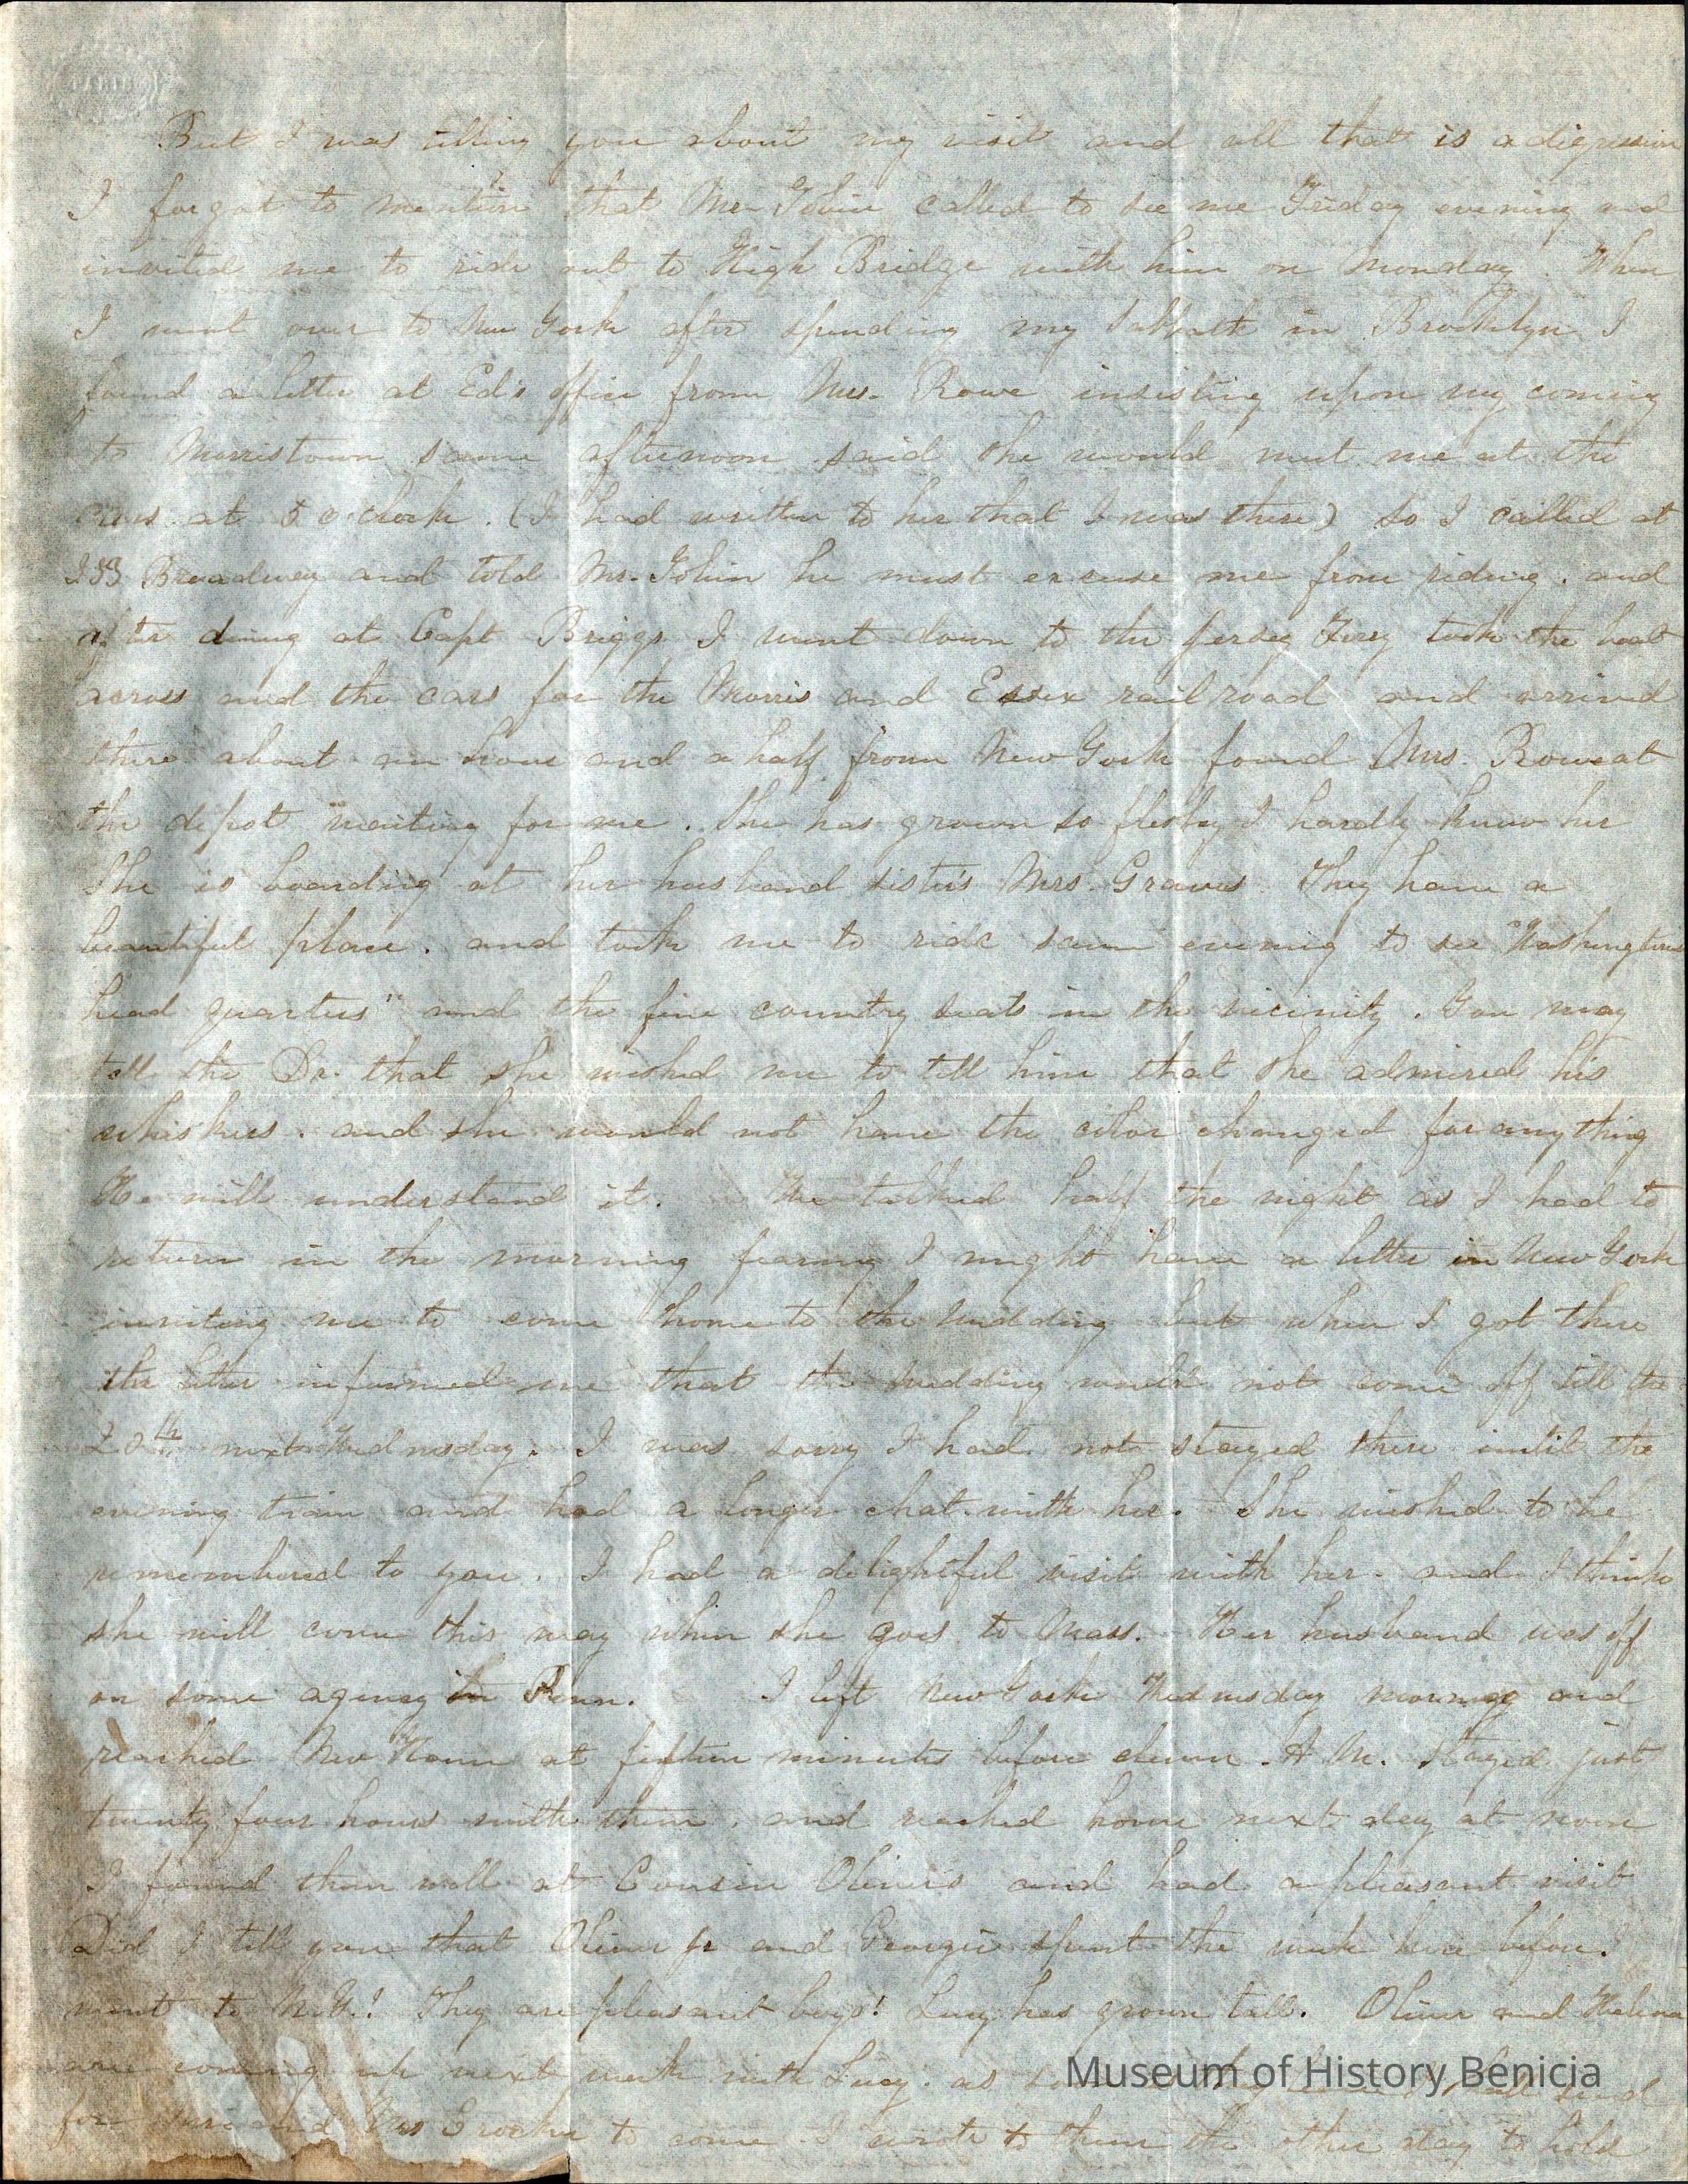 PARIS
But I was telling you about my visit and all that is a digression
I forgot to mention that Mr. Gobin called to see me Friday evening and
invited me to ride out to High Bridge with him on Monday. When
I went over to New York after spending my Sabbath in Brooklyn I
found a letter at Ed's office from Mrs. Rowe insisting upon my coming
to Morristown same afternoon said she would meet me at the
cars at 5 o'clock. (I had written to her that I was there) So I called at
Broadway and told Mr. Gobin he must excuse me from riding. and
after dining at Capt Briggs I went down to the Jersey Ferry took the boat
across and the cars for the Morris and Essex railroad and arrived
there about an hour and a half from New York found Mrs. Rowe at
the depot waiting for me. She has grown so fleshy I hardly knew her
She is boarding at her husband sister's Mrs. Graves. They have a
beautiful place. and took me to ride same evening to see "Washingtons
head quarters" and the fine country seats in the vicinity. You may
tell the Dr. that she wished me to tell him that she admired his
whiskers. and she would not have the color changed for anything
He will understand it. We talked half the night as I had to
return in the morning fearing I might have a letter in New York
inviting me to come home to the wedding but when I got there
the letter informed me that the wedding would not come off till the
20th next Wednesday. I was sorry I had not stayed there until the
evening train and had a longer chat with her. She wished to be
remembered to you. I had a delightful visit with her. and I think
she will come this way when she goes to Mass. Her husband was off
on some agency in Penn. I left New York Wednesday morning and
reached New Haven at fifteen minutes before eleven A.M. Stayed just
twenty four hours with them. and reached home next day at noon
I found them well at Cousin Oliver's and had a pleasant visit
Did I tell you that Oliver Jr and Georgie spent the week here before I
went to N.Y.! They are pleasant boys! Lucy has grown tall. Oliver and
are coming up next week with Lucy. as
for and Mrs Crocker to come I wrote to them the other day to hold
Museum of History Benicia